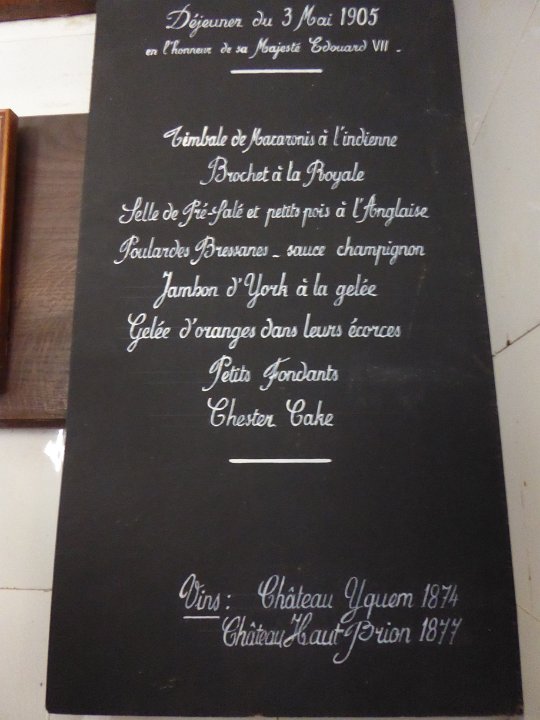 Déjeuner du 3 Mai 1905
en l'honneur de sa Majesté Edouard VII -
Timbale de Macaronis à l'indienne
Brochet à la Royale
Selle de Pré-Salé et petits pois à l'Anglaise
Poulardes Bressanes - sauce champignon
Jambon d'York à la gelée
Gelée d'oranges dans leurs écorces
Petits Fondants
Chester Cake
Vins : Château Yquem 1874
Château Haut Brion 1877